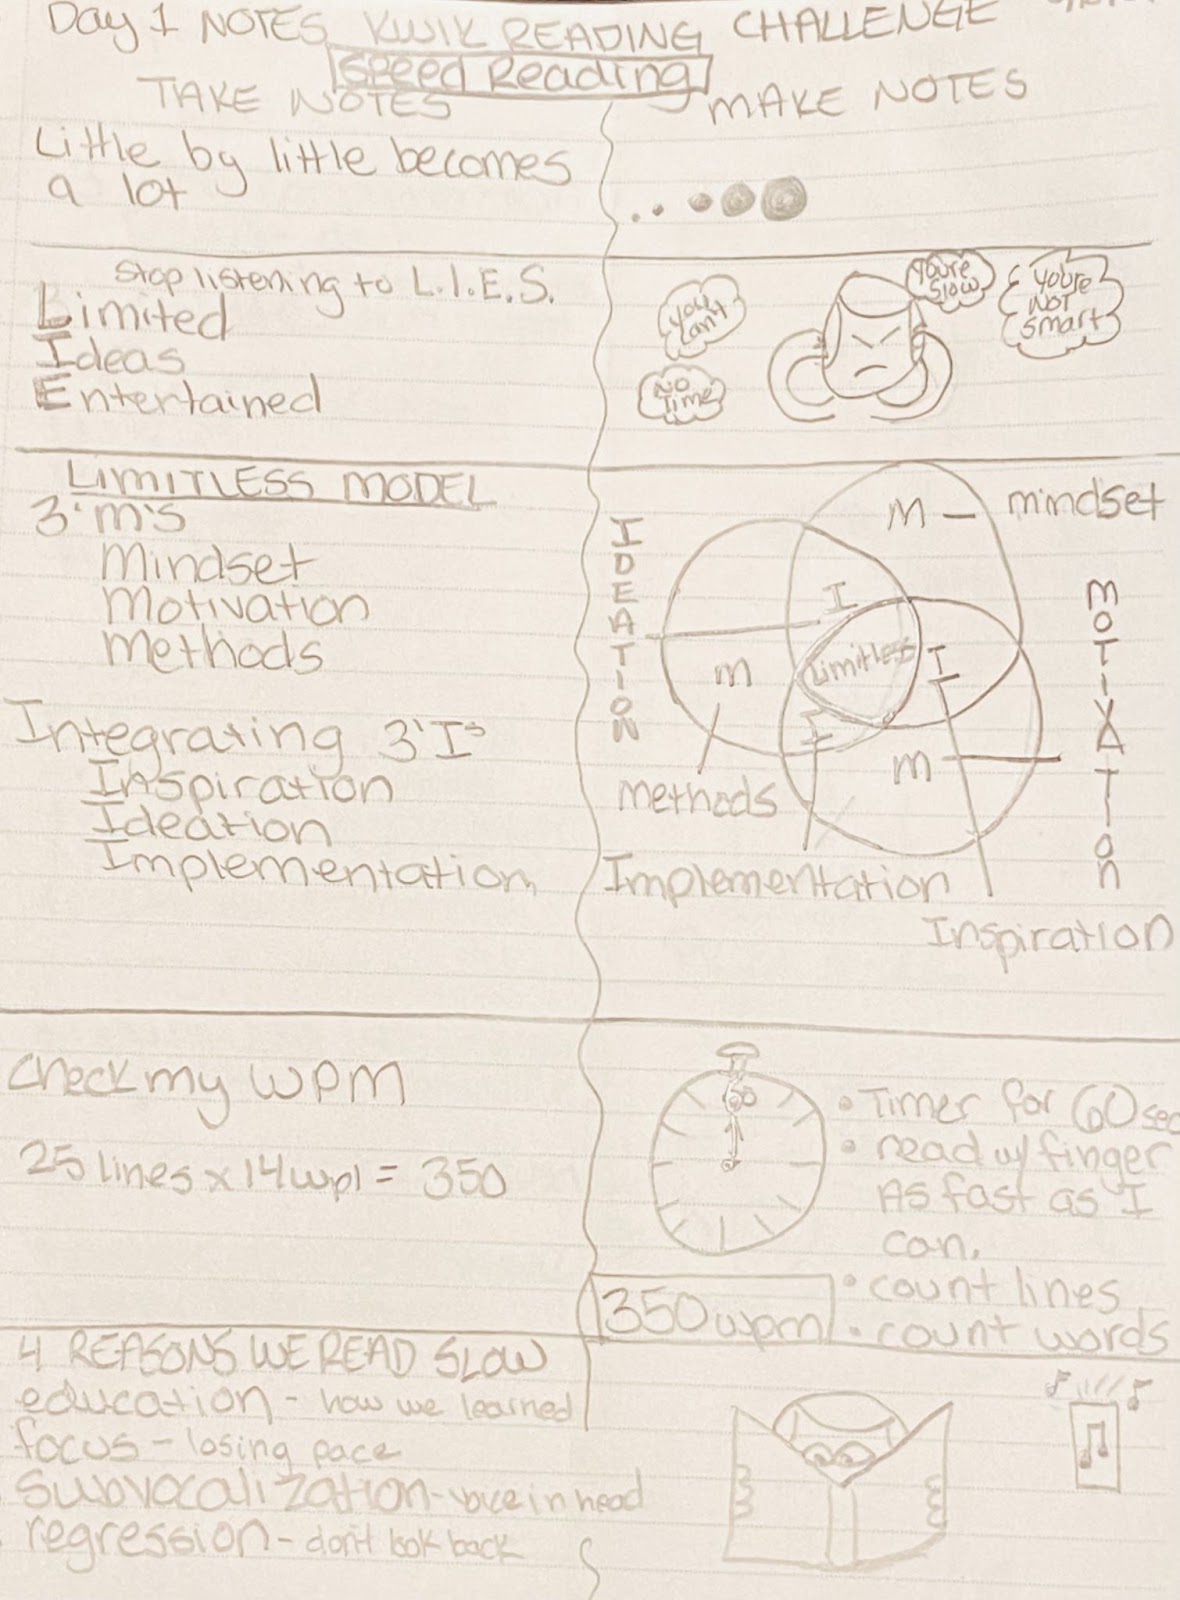 Day 1 NOTES KWIK READING CHALLENGE
Speed Reading
TAKE NOTES
MAKE NOTES
Little by little becomes
a lot
Stop listening to L.I.E.S.
Limited
Ideas
Entertained
you can't
No Time
you're slow
you're NOT smart
LIMITLESS MODEL
3'm's
Mindset
Motivation
Methods
Integrating 3'I's
Inspiration
Ideation
Implementation
IDEATION
M - mindset
MOTIVATION
I
Limitless
I
M
I
M
Methods
Implementation
Inspiration
Check my WPM
25 lines x 14wpl = 350
60
• Timer for 60 sec
• read w/ finger
As fast as I
can.
• count lines
• count words
350 wpm
4 REASONS WE READ SLOW
education - how we learned
focus - losing pace
subvocalization - voice in head
regression - don't look back